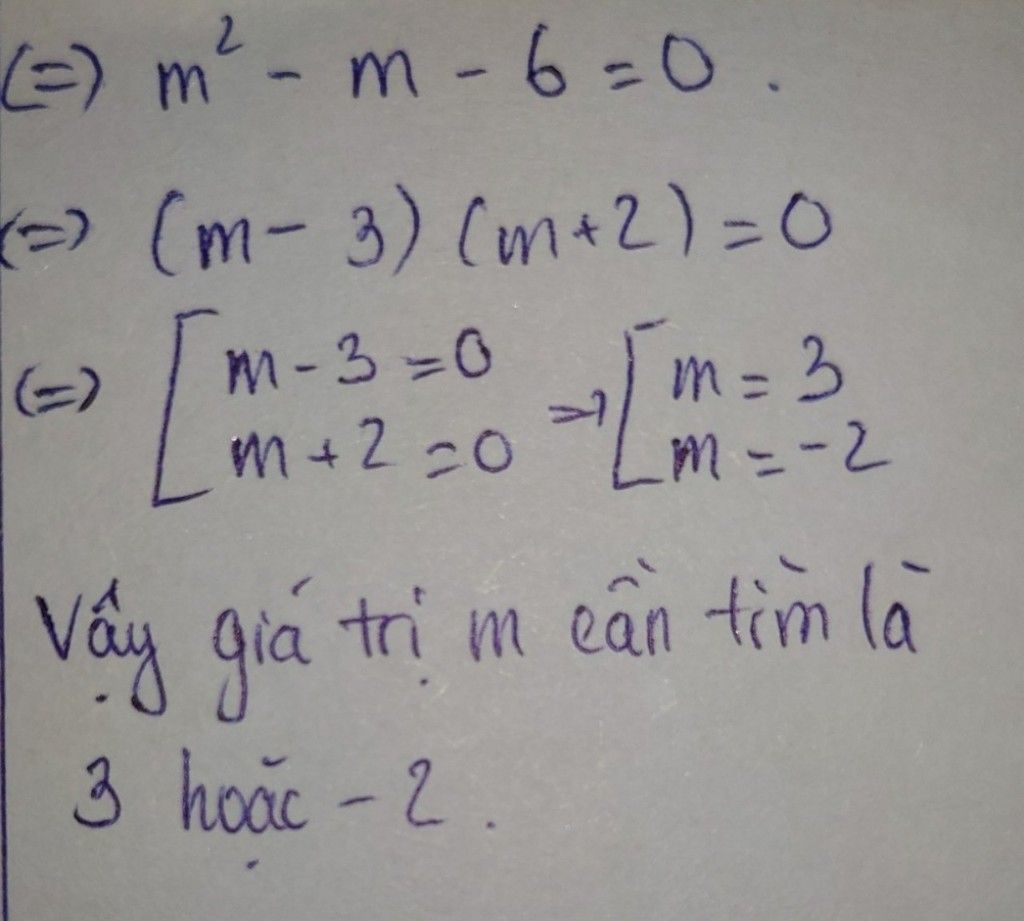 (=) m² - m - 6 = 0 .
(=) (m - 3) (m + 2) = 0
(=) [ m - 3 = 0 => [ m = 3
m + 2 = 0 m = -2
Vậy giá trị m cần tìm là
3 hoặc - 2 .